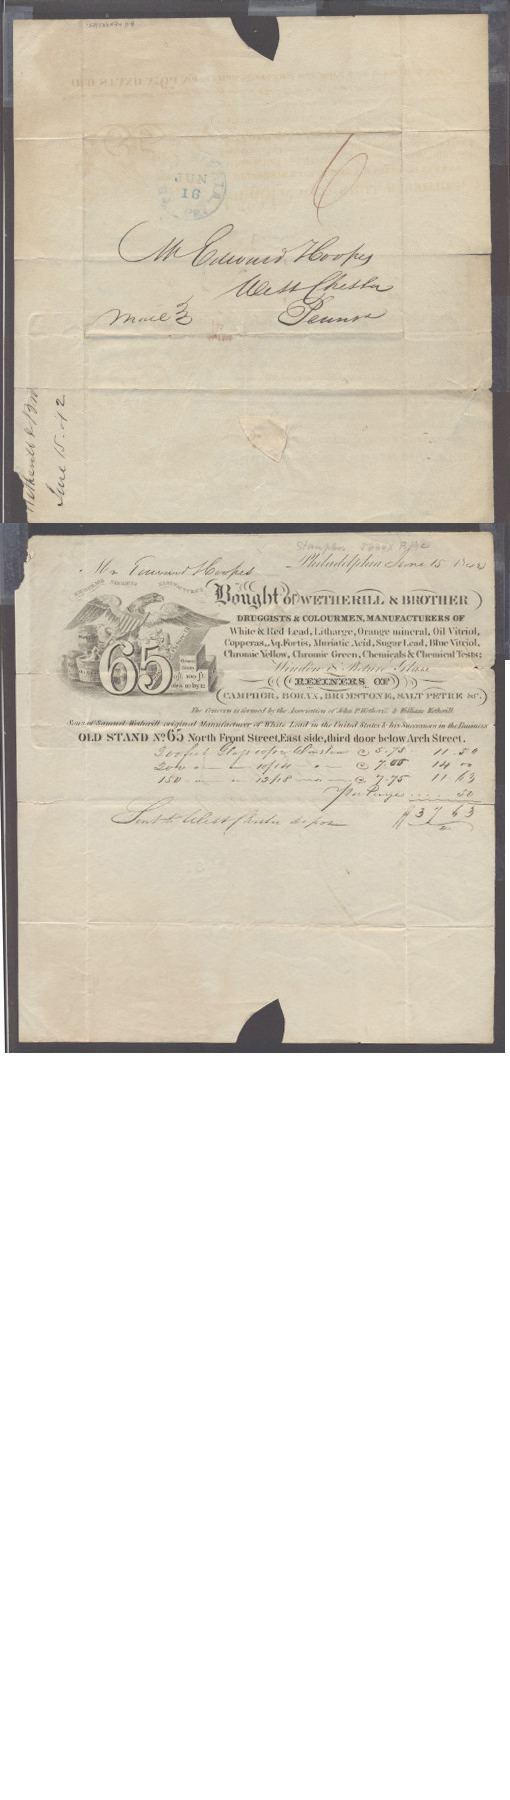 6
JUN
16
Pa
Mr Edward Hoopes
West Chester
Mail Penna
Wetherill & Bro
June 15. 42
Philadelphia June 15 1842
Mr Edward Hoopes
Bought of WETHERILL & BROTHER
DRUGGISTS & COLOURMEN, MANUFACTURERS OF
White & Red Lead, Litharge, Orange mineral, Oil Vitriol,
Copperas, Aq. Fortis, Muriatic Acid, Sugar Lead, Blue Vitriol,
Chromic Yellow, Chromic Green, Chemicals & Chemical Tests;
Window & Picture Glass
REFINERS OF
CAMPHOR, BORAX, BRIMSTONE, SALT PETRE &c.
65
The Concern is formed by the Association of John P. Wetherill & William Wetherill
Sons of Samuel Wetherill original Manufacturer of White Lead in the United States & his Successors in the Business
OLD STAND No. 65 North Front Street, East side, third door below Arch Street.
Glass @ 5.75 11.50
200 10/14 @ 7.00 14 00
150 12/18 @ 7.75 11.63
50
$37 63
Sent to West Chester depot